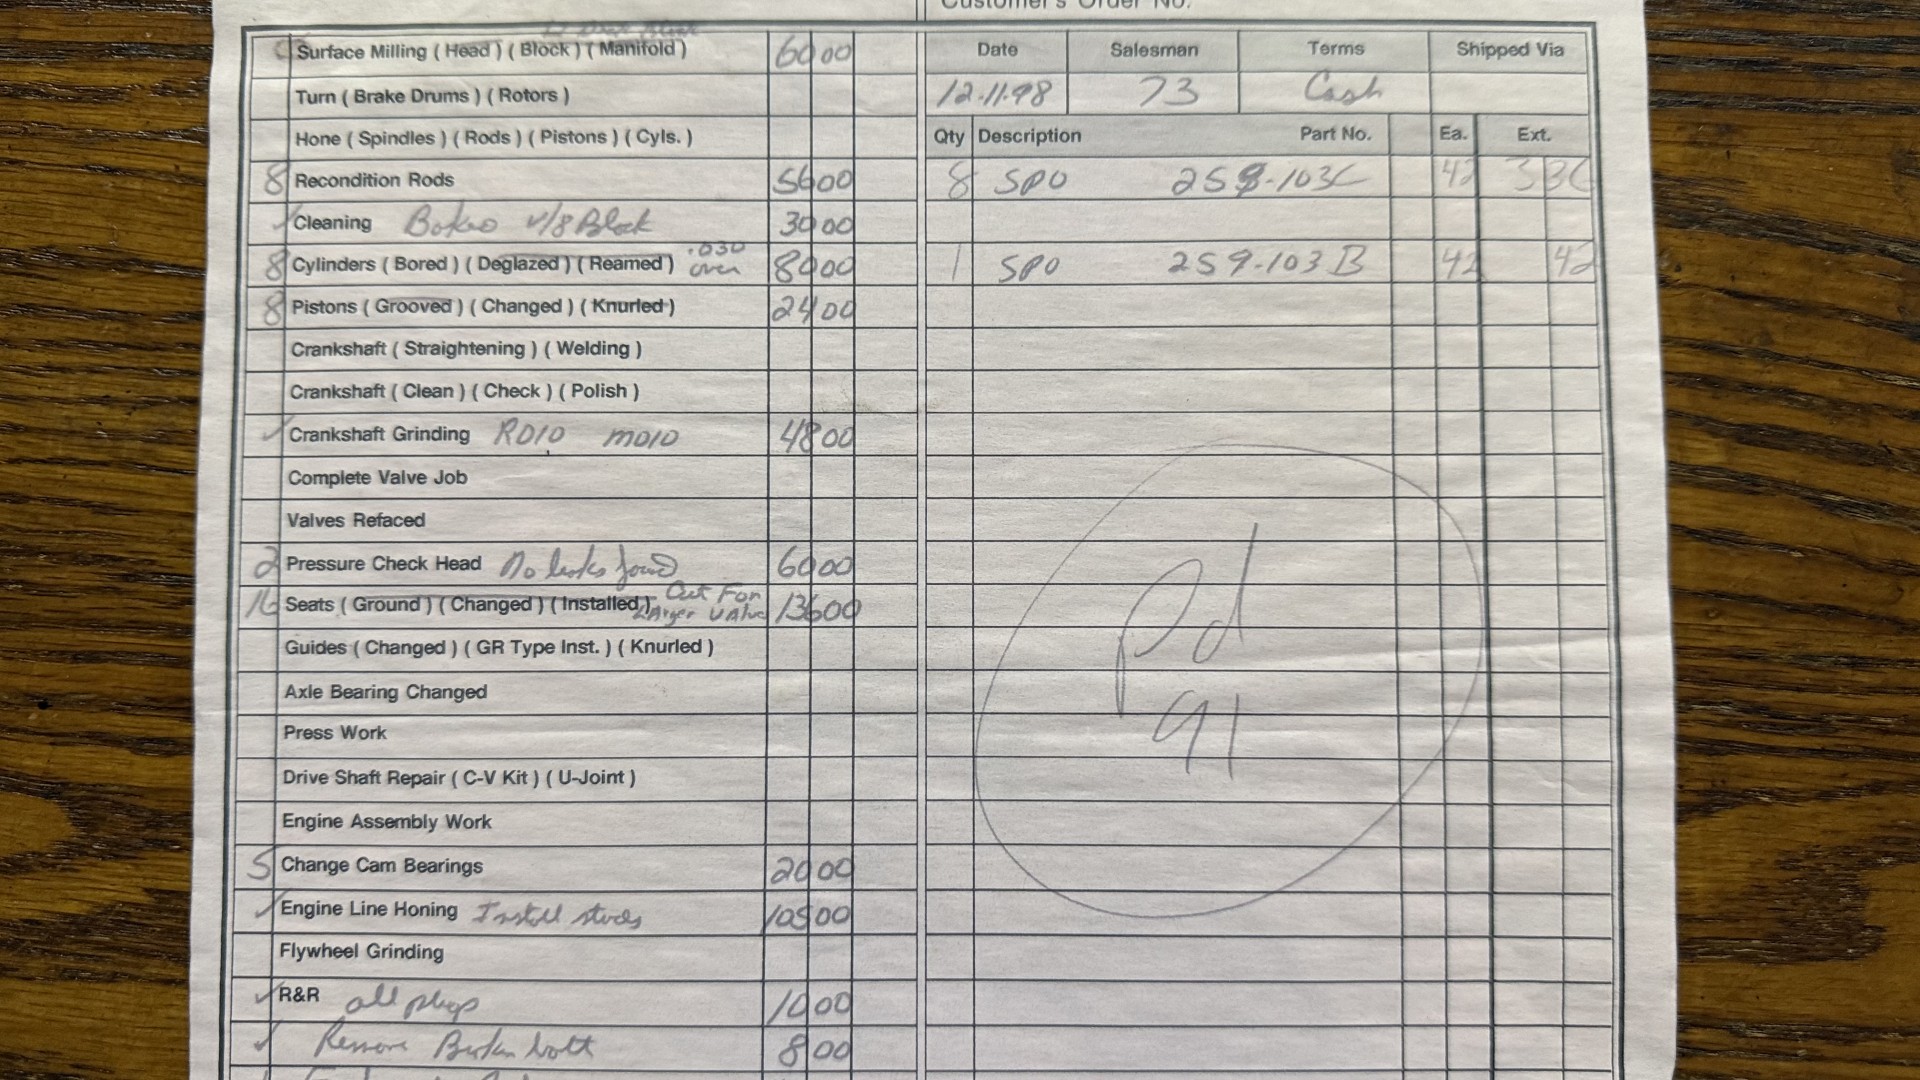 Customer's Order No.
Surface Milling ( Head ) ( Block ) ( Manifold ) 60 00
Turn ( Brake Drums ) ( Rotors )
Hone ( Spindles ) ( Rods ) ( Pistons ) ( Cyls. )
8 Recondition Rods 56 00
✓ Cleaning Baked V/8 Block 30 00
8 Cylinders ( Bored ) ( Deglazed ) ( Reamed ) .030 over 80 00
8 Pistons ( Grooved ) ( Changed ) ( Knurled ) 24 00
Crankshaft ( Straightening ) ( Welding )
Crankshaft ( Clean ) ( Check ) ( Polish )
✓ Crankshaft Grinding R010 M010 48 00
Complete Valve Job
Valves Refaced
2 Pressure Check Head No leaks found 60 00
16 Seats ( Ground ) ( Changed ) ( Installed ) Cut For Larger Valve 136 00
Guides ( Changed ) ( GR Type Inst. ) ( Knurled )
Axle Bearing Changed
Press Work
Drive Shaft Repair ( C-V Kit ) ( U-Joint )
Engine Assembly Work
5 Change Cam Bearings 20 00
✓ Engine Line Honing Install studs 105 00
Flywheel Grinding
✓ R&R all plugs 10 00
✓ Remove Broken bolt 8 00
Date Salesman Terms Shipped Via
12-11-98 73 Cash
Qty Description Part No. Ea. Ext.
8 SPO 259-103C 42
1 SPO 259-103B 42 42
pd
91